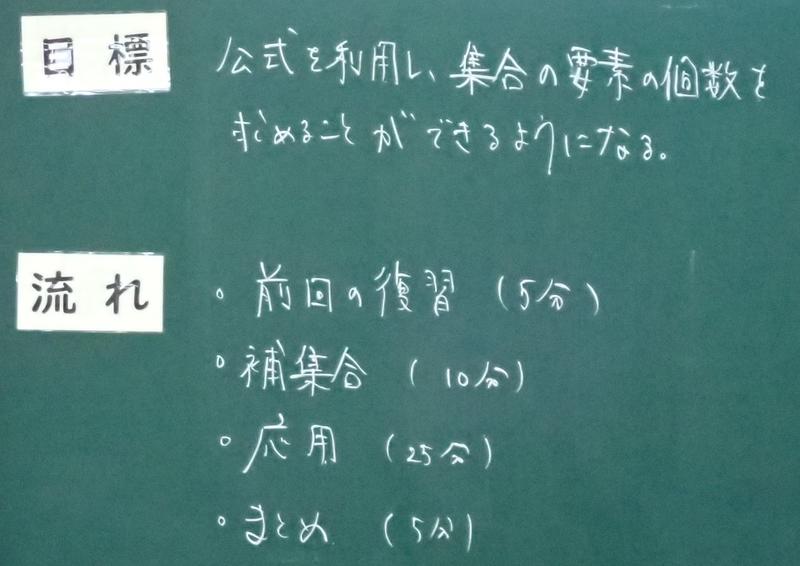 目標 公式を利用し、集合の要素の個数を
求めることができるようになる。
流れ ・前回の復習 (5分)
・補集合 (10分)
・応用 (25分)
・まとめ (5分)